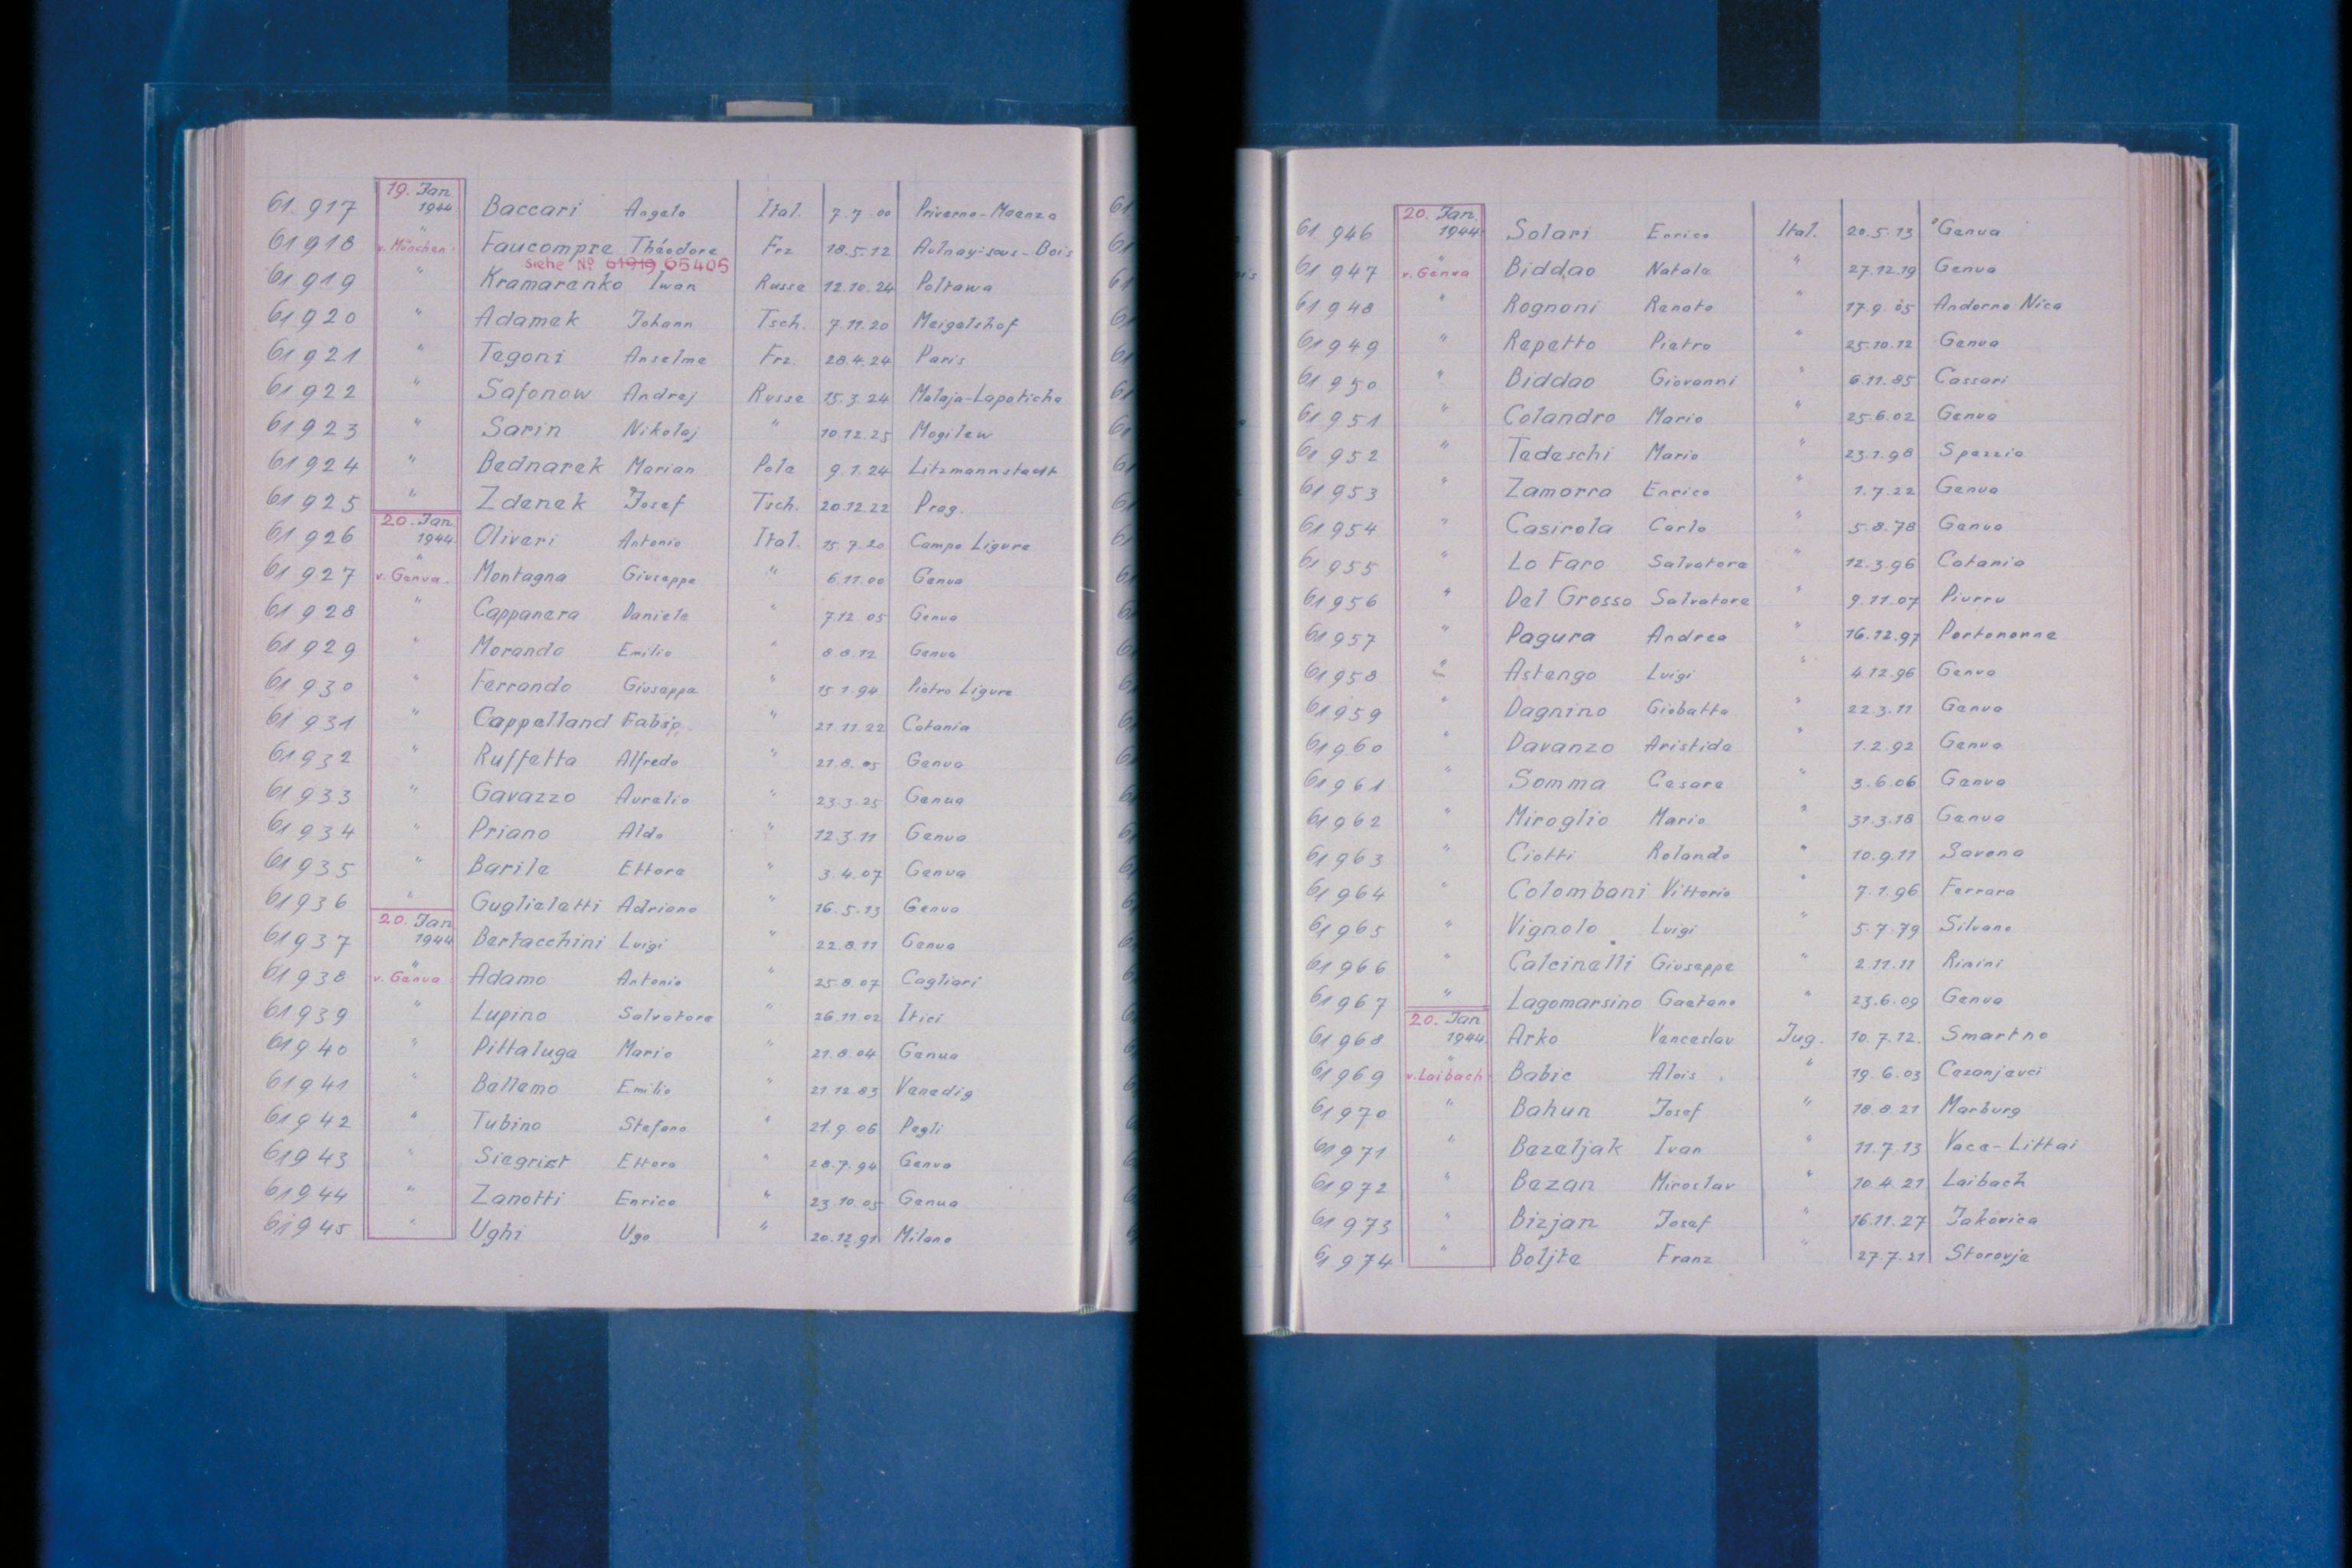 19. Jan.
61 917 1944 Baccari Angelo Ital. 7.7.00 Priverno-Maenza
"
61 918 v. München. Faucompre Théodore Frz 18.5.12 Aulnay-sous-Bois
siehe No 61919 65405
61 919 " Kramarenko Iwan Russe 12.10.24 Poltawa
61 920 " Adamek Johann Tsch. 7.11.20 Meigelshof
61 921 " Tegoni Anselme Frz. 28.4.24 Paris
61 922 " Safonow Andrej Russe 15.3.24 Malaja-Lapoticha
61 923 " Sarin Nikolaj " 10.12.25 Mogilew
61 924 " Bednarek Marian Pole 9.1.24 Litzmannstadt
61 925 " Zdenek Josef Tsch. 20.12.22 Prag.
20. Jan.
61 926 1944. Oliveri Antonio Ital. 15.7.20 Campo Ligure
"
61 927 v. Genua. Montagna Giuseppe " 6.11.00 Genua
61 928 " Cappanera Daniele " 7.12.05 Genua
61 929 " Morando Emilio " 8.8.12 Genua
61 930 " Ferrando Giuseppe " 15.1.94 Pietro Ligure
61 931 " Cappelland Fabio " 21.11.22 Catania
61 932 " Ruffetta Alfredo " 21.8.05 Genua
61 933 " Gavazzo Aurelio " 23.3.25 Genua
61 934 " Priano Aldo " 12.3.11 Genua
61 935 " Barile Ettore " 3.4.07 Genua
61 936 " Guglieletti Adriano " 16.5.13 Genua
20. Jan
61 937 1944 Bertacchini Luigi " 22.8.11 Genua
"
61 938 v. Genua Adamo Antonio " 25.8.07 Cagliari
61 939 " Lupino Salvatore " 26.11.02 Itici
61 940 " Pittaluga Mario " 21.8.04 Genua
61 941 " Ballamo Emilio " 21.12.83 Venedig
61 942 " Tubino Stefano " 21.9.06 Pegli
61 943 " Siegrist Ettore " 28.7.94 Genua
61 944 " Zanotti Enrico " 23.10.05 Genua
61 945 " Ughi Ugo " 20.12.91 Milano
20. Jan.
61 946 1944 Solari Enrico Ital. 20.5.13 Genua
"
61 947 v. Genua Biddao Natale " 27.12.19 Genua
61 948 " Rognoni Renato " 17.9.05 Andorno Nica
61 949 " Repetto Pietro " 25.10.12 Genua
61 950 " Biddao Giovanni " 6.11.85 Cassari
61 951 " Colandro Mario " 25.6.02 Genua
61 952 " Tedeschi Mario " 23.1.98 Spezzia
61 953 " Zamorra Enrico " 1.7.22 Genua
61 954 " Casirola Carlo " 5.8.78 Genua
61 955 " Lo Faro Salvatore " 12.3.96 Catania
61 956 " Del Grosso Salvatore " 9.11.07 Piurru
61 957 " Pagura Andrea " 16.12.97 Portononne
61 958 " Astengo Luigi " 4.12.96 Genua
61 959 " Dagnino Giobatta " 22.3.11 Genua
61 960 " Davanzo Aristide " 1.2.92 Genua
61 961 " Somma Cesare " 3.6.06 Genua
61 962 " Miroglio Mario " 31.3.18 Genua
61 963 " Ciotti Rolando " 10.9.11 Savona
61 964 " Colombani Vittorio " 7.1.96 Ferrara
61 965 " Vignolo Luigi " 5.7.79 Silvano
61 966 " Calcinelli Giuseppe " 2.11.11 Rimini
61 967 " Lagomarsino Gaetano " 23.6.09 Genua
20. Jan
61 968 1944. Arko Venceslav Jug. 10.7.12. Smartno
"
61 969 v. Laibach Babic Alois " 19.6.03 Cezanjevci
61 970 " Bahun Josef " 18.8.21 Marburg
61 971 " Bezeljak Ivan " 11.7.13 Vace-Littai
61 972 " Bezan Miroslav " 10.4.21 Laibach
61 973 " Bizjan Josef " 16.11.27 Jakovica
61 974 " Boljte Franz " 27.7.21 Storovje